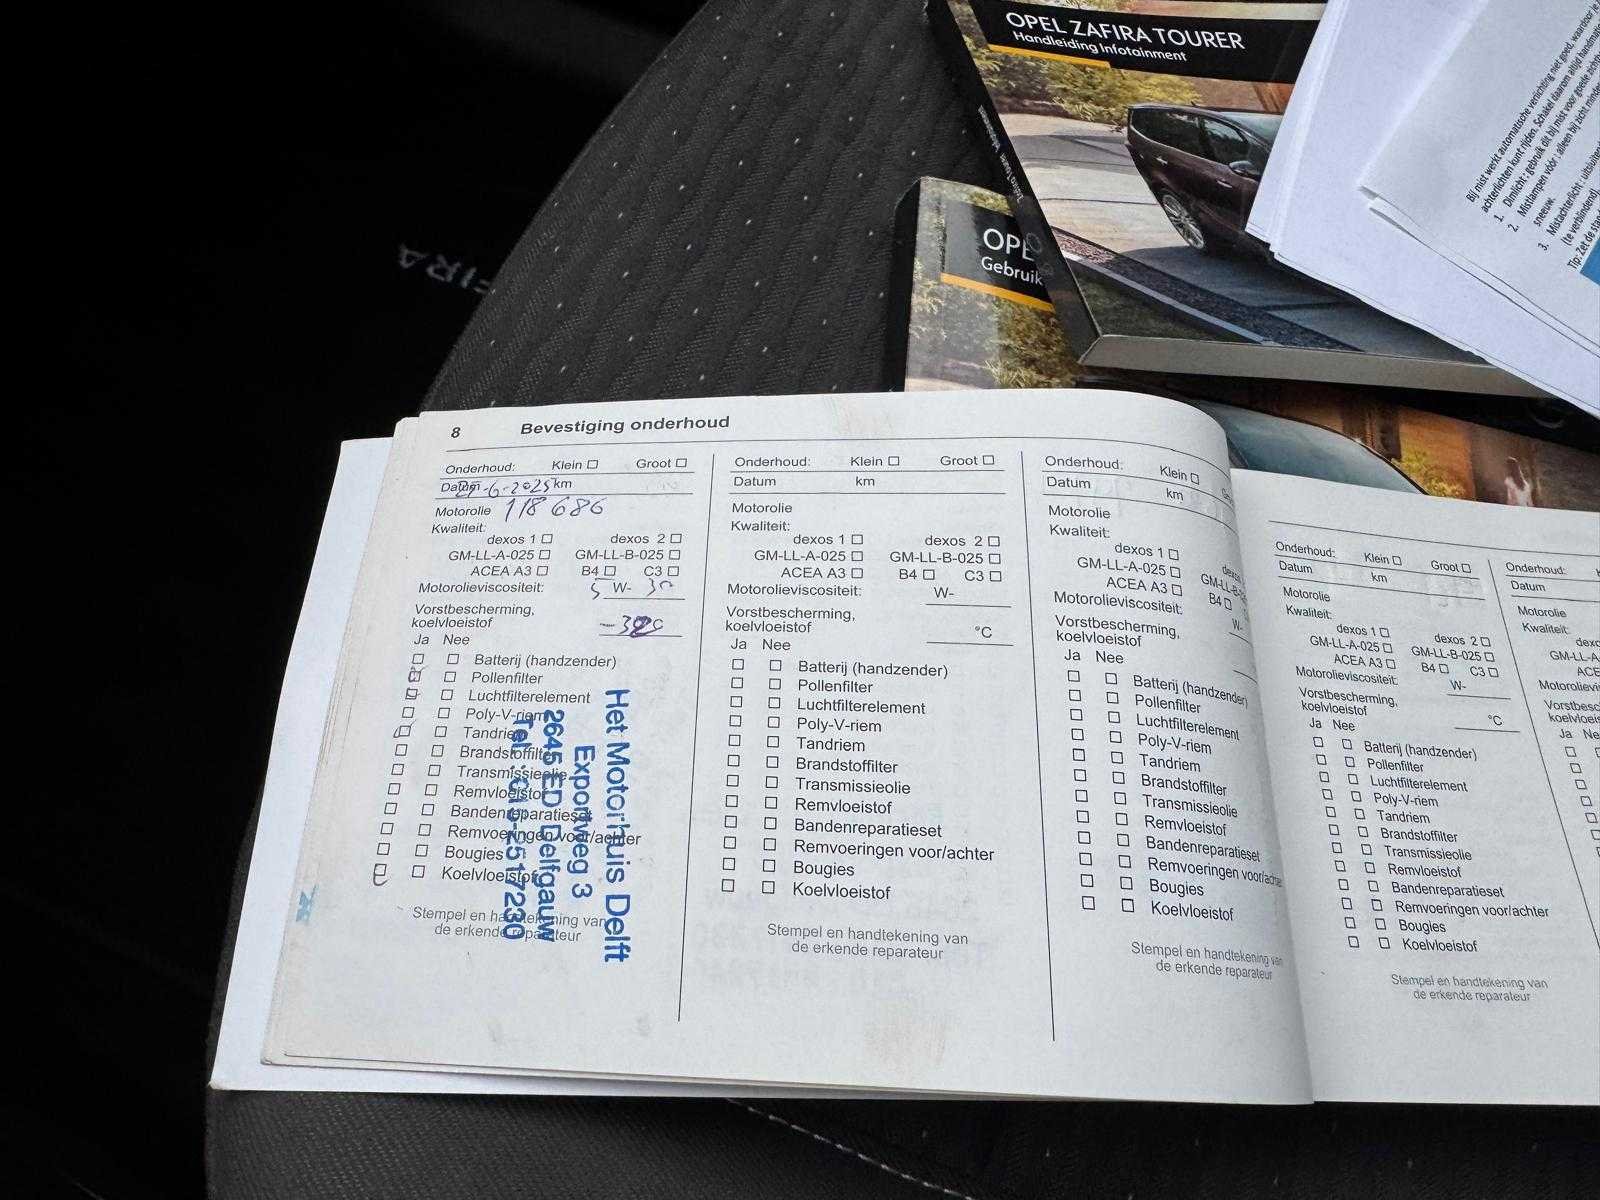 OPEL ZAFIRA TOURER
Handleiding Infotainment
Zafira Tourer
OPEL
Gebruik
FIRA
Bij mist werkt automatische verlichting niet goed, waardoor je
achterlichten kunt rijden. Schakel daarom altijd handmatig
1. Dimlicht: gebruik dit bij mist voor goede zicht
2. Mistlampen vóór: alleen bij zicht minder
sneeuw.
3. Mistachterlicht: uitsluitend
(te verblindend).
Tip: Zet de stand
8 Bevestiging onderhoud
Onderhoud: Klein Groot
Datum -6-2025 km
Motorolie 118686
Kwaliteit:
dexos 1 dexos 2
GM-LL-A-025 GM-LL-B-025
ACEA A3 B4 C3
Motorolieviscositeit: 5 W- 30
Vorstbescherming,
koelvloeistof
Ja Nee
Batterij (handzender)
Pollenfilter
Luchtfilterelement
Poly-V-riem
Tandriem
Brandstoffilter
Transmissieolie
Remvloeistof
Bandenreparatieset
Remvoeringen voor/achter
Bougies
Koelvloeistof
Stempel en handtekening van
de erkende reparateur
Het Motorhuis Delft
Exportweg 3
2645 ED Delfgauw
Tel.: 015-2517230
Onderhoud: Klein Groot
Datum km
Motorolie
Kwaliteit:
dexos 1 dexos 2
GM-LL-A-025 GM-LL-B-025
ACEA A3 B4 C3
Motorolieviscositeit: W-
Vorstbescherming,
koelvloeistof °C
Ja Nee
Batterij (handzender)
Pollenfilter
Luchtfilterelement
Poly-V-riem
Tandriem
Brandstoffilter
Transmissieolie
Remvloeistof
Bandenreparatieset
Remvoeringen voor/achter
Bougies
Koelvloeistof
Stempel en handtekening van
de erkende reparateur
Onderhoud: Klein
Datum km
Motorolie
Kwaliteit:
dexos 1 dexos
GM-LL-A-025 GM-LL-B-0
ACEA A3 B4
Motorolieviscositeit: W-
Vorstbescherming,
koelvloeistof
Ja Nee
Batterij (handzender)
Pollenfilter
Luchtfilterelement
Poly-V-riem
Tandriem
Brandstoffilter
Transmissieolie
Remvloeistof
Bandenreparatieset
Remvoeringen voor/achter
Bougies
Koelvloeistof
Stempel en handtekening van
de erkende reparateur
Onderhoud: Klein Groot
Datum km
Motorolie
Kwaliteit:
dexos 1 dexos 2
GM-LL-A-025 GM-LL-B-025
ACEA A3 B4 C3
Motorolieviscositeit: W-
Vorstbescherming,
koelvloeistof °C
Ja Nee
Batterij (handzender)
Pollenfilter
Luchtfilterelement
Poly-V-riem
Tandriem
Brandstoffilter
Transmissieolie
Remvloeistof
Bandenreparatieset
Remvoeringen voor/achter
Bougies
Koelvloeistof
Stempel en handtekening van
de erkende reparateur
Onderhoud:
Datum
Motorolie
Kwaliteit:
dexo
GM-LL-A
ACEA
Motorolievi
Vorstbesc
koelvloeis
Ja Ne